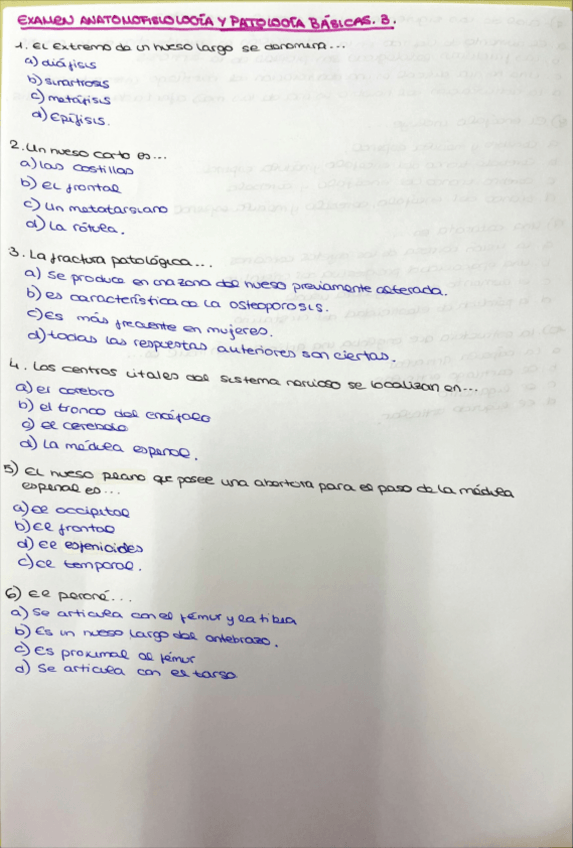 EXAMEN ANATOMOFISIOLOGÍA Y PATOLOGÍA BÁSICAS. B.
1. El extremo de un hueso largo se denomina...
a) diáfisis
b) sinartrosis
c) metáfisis
d) Epífisis.
2. Un hueso corto es...
a) las costillas
b) el frontal
c) Un metatarsiano
d) La rótula.
3. La fractura patológica...
a) Se produce en una zona del hueso previamente alterada.
b) es característica de la osteoporosis.
c) Es más frecuente en mujeres.
d) todas las respuestas anteriores son ciertas.
4. Los centros vitales del sistema nervioso se localizan en...
a) el cerebro
b) el tronco del encéfalo
c) el cerebelo
d) La médula espinal.
5) El hueso plano que posee una abertura para el paso de la médula
espinal es...
a) el occipital
b) el frontal
d) el esfenoides
c) el temporal.
6) El peroné...
a) Se articula con el fémur y la tibia
b) Es un hueso largo del antebrazo.
c) Es proximal al fémur
d) Se articula con el tarso